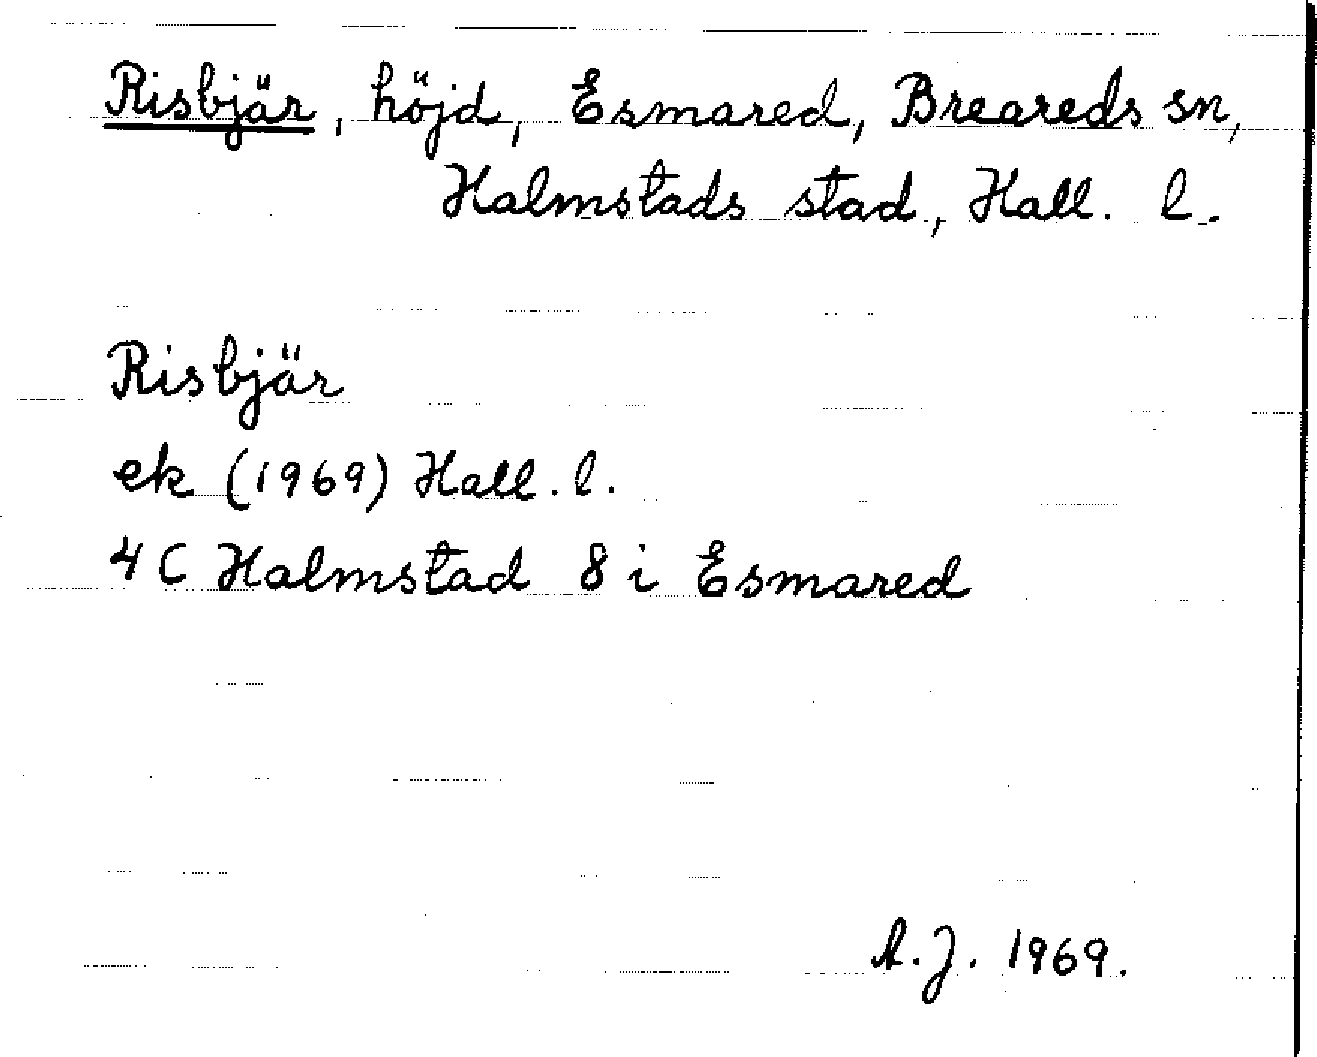 Risbjär, höjd, Esmared, Breareds sn,
Halmstads stad, Hall. l.
Risbjär
ek (1969) Hall. l.
4 C Halmstad 8 i Esmared
A.J. 1969.